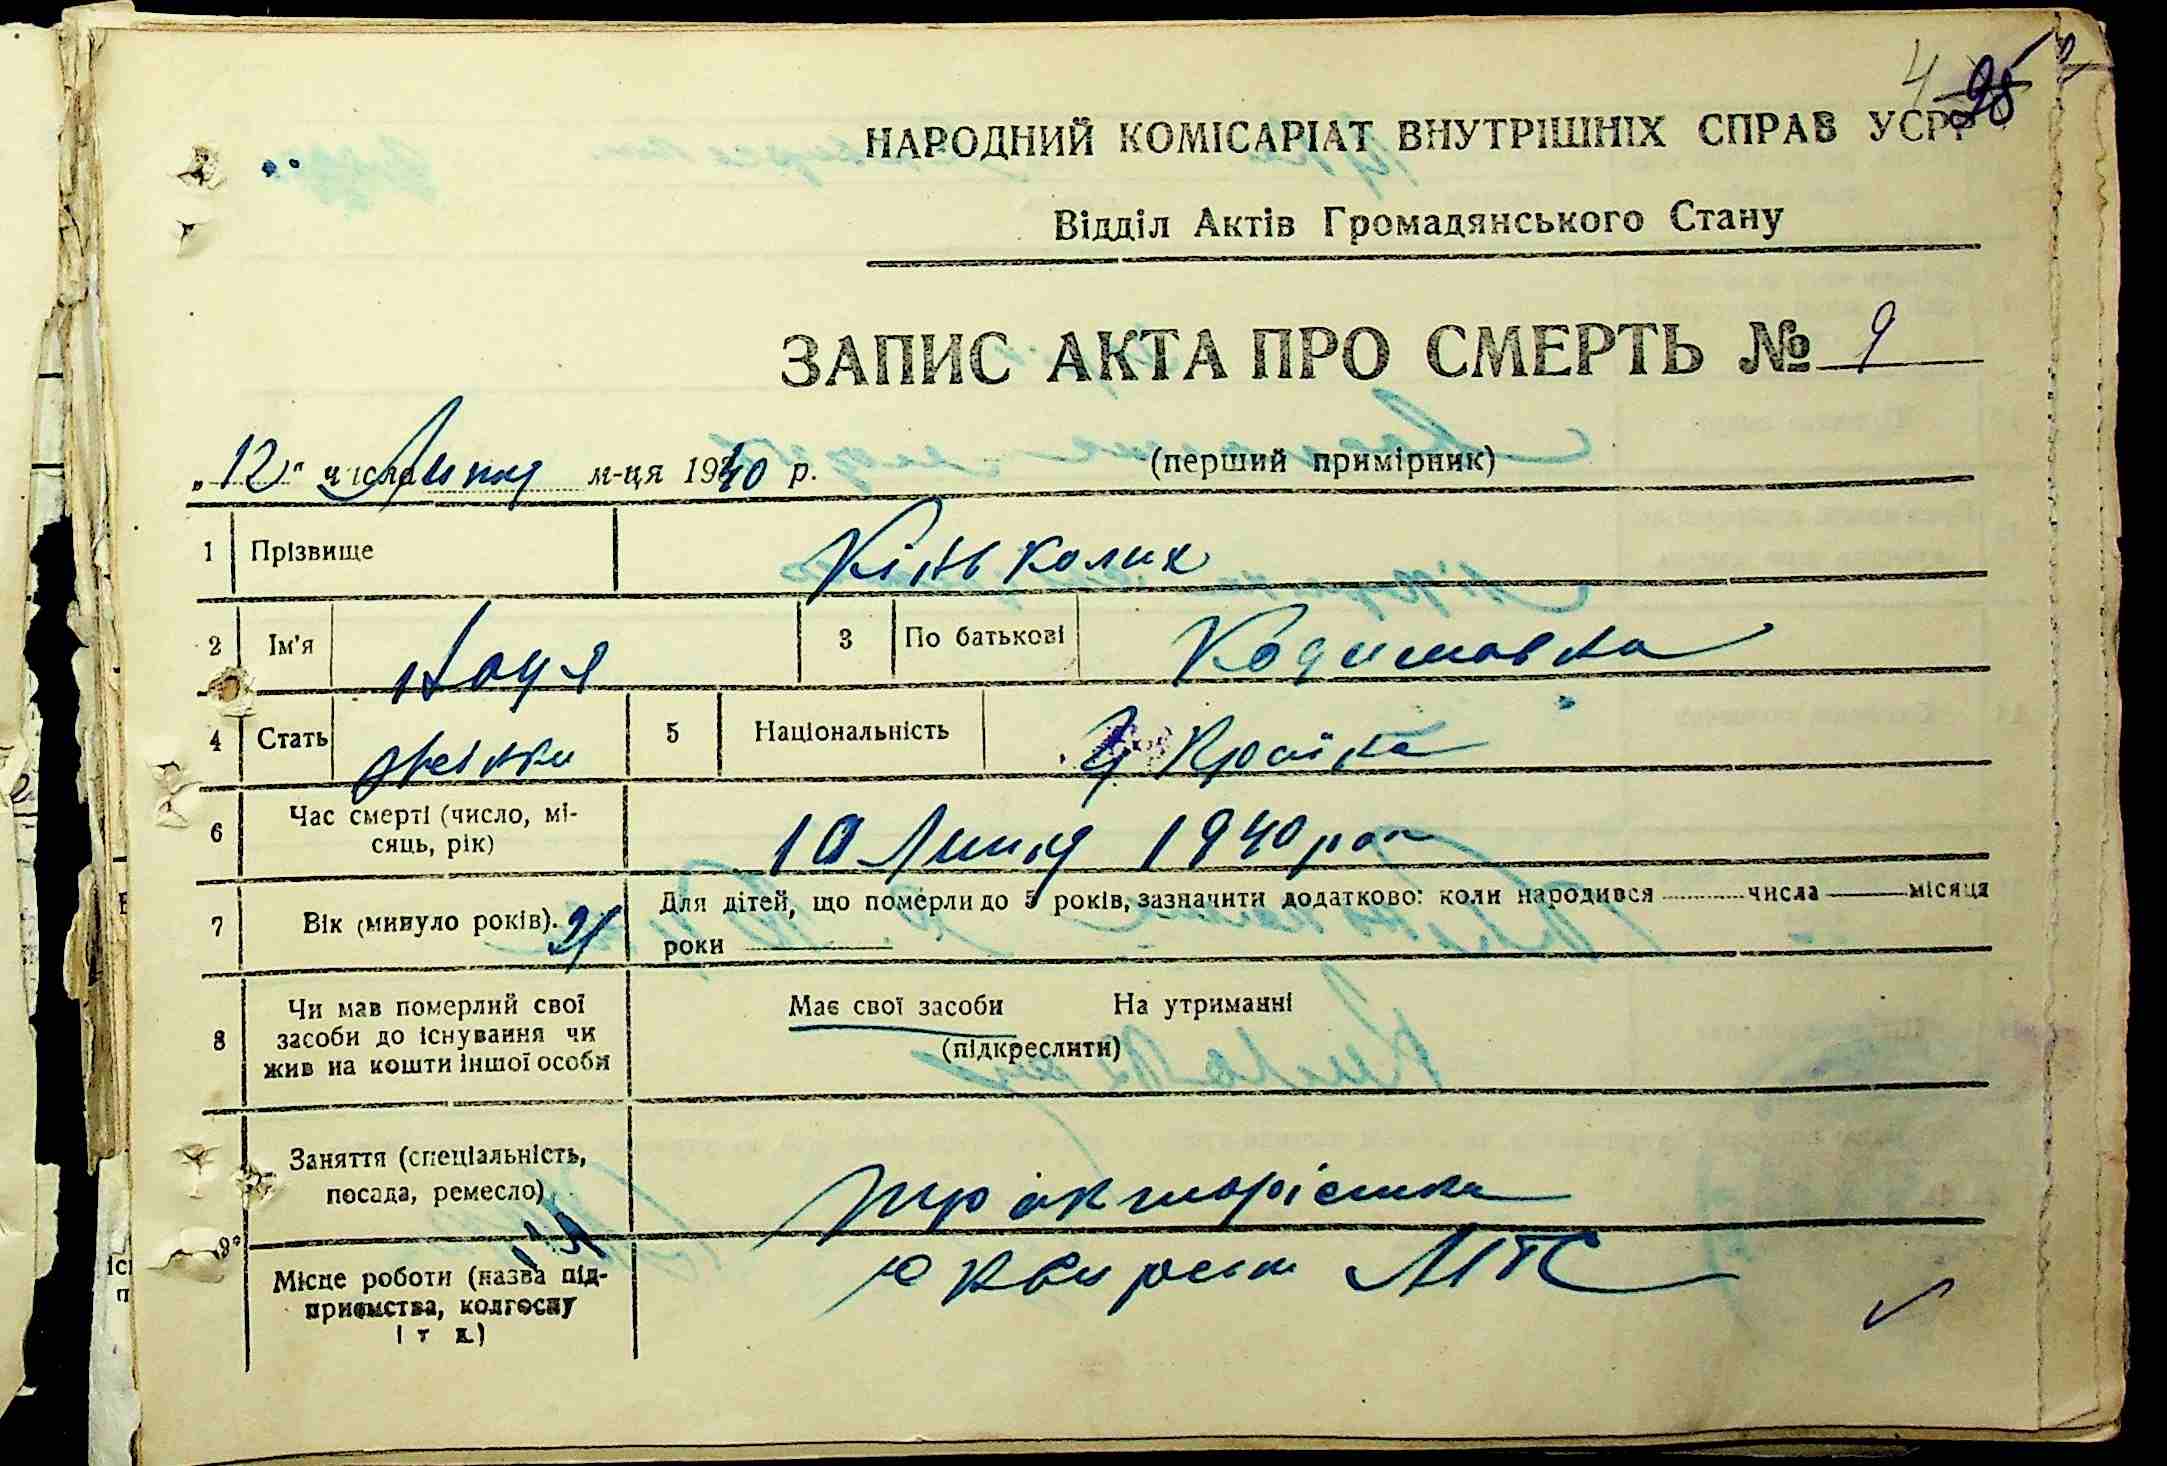 4 28
НАРОДНИЙ КОМІСАРІАТ ВНУТРІШНІХ СПРАВ УСРР
Відділ Актів Громадянського Стану
ЗАПИС АКТА ПРО СМЕРТЬ № 9
„12" числа Липня м-ця 1940 р. (перший примірник)
1 Прізвище Кінь
2 Ім'я 3 По батькові
4 Стать жінки 5 Національність Українка
6 Час смерті (число, мі-
сяць, рік) 10 Липня 1940 рок
7 Вік (минуло років). 21 Для дітей, що померли до 5 років, зазначити додатково: коли народився числа місяця
роки
8 Чи мав померлий свої
засоби до існування чи
жив на кошти іншої особи
Має свої засоби На утриманні
(підкреслити)
Заняття (спеціальність,
посада, ремесло) трактористка
9
Місце роботи (назва під-
приємства, колгоспу
і т д.) МТС